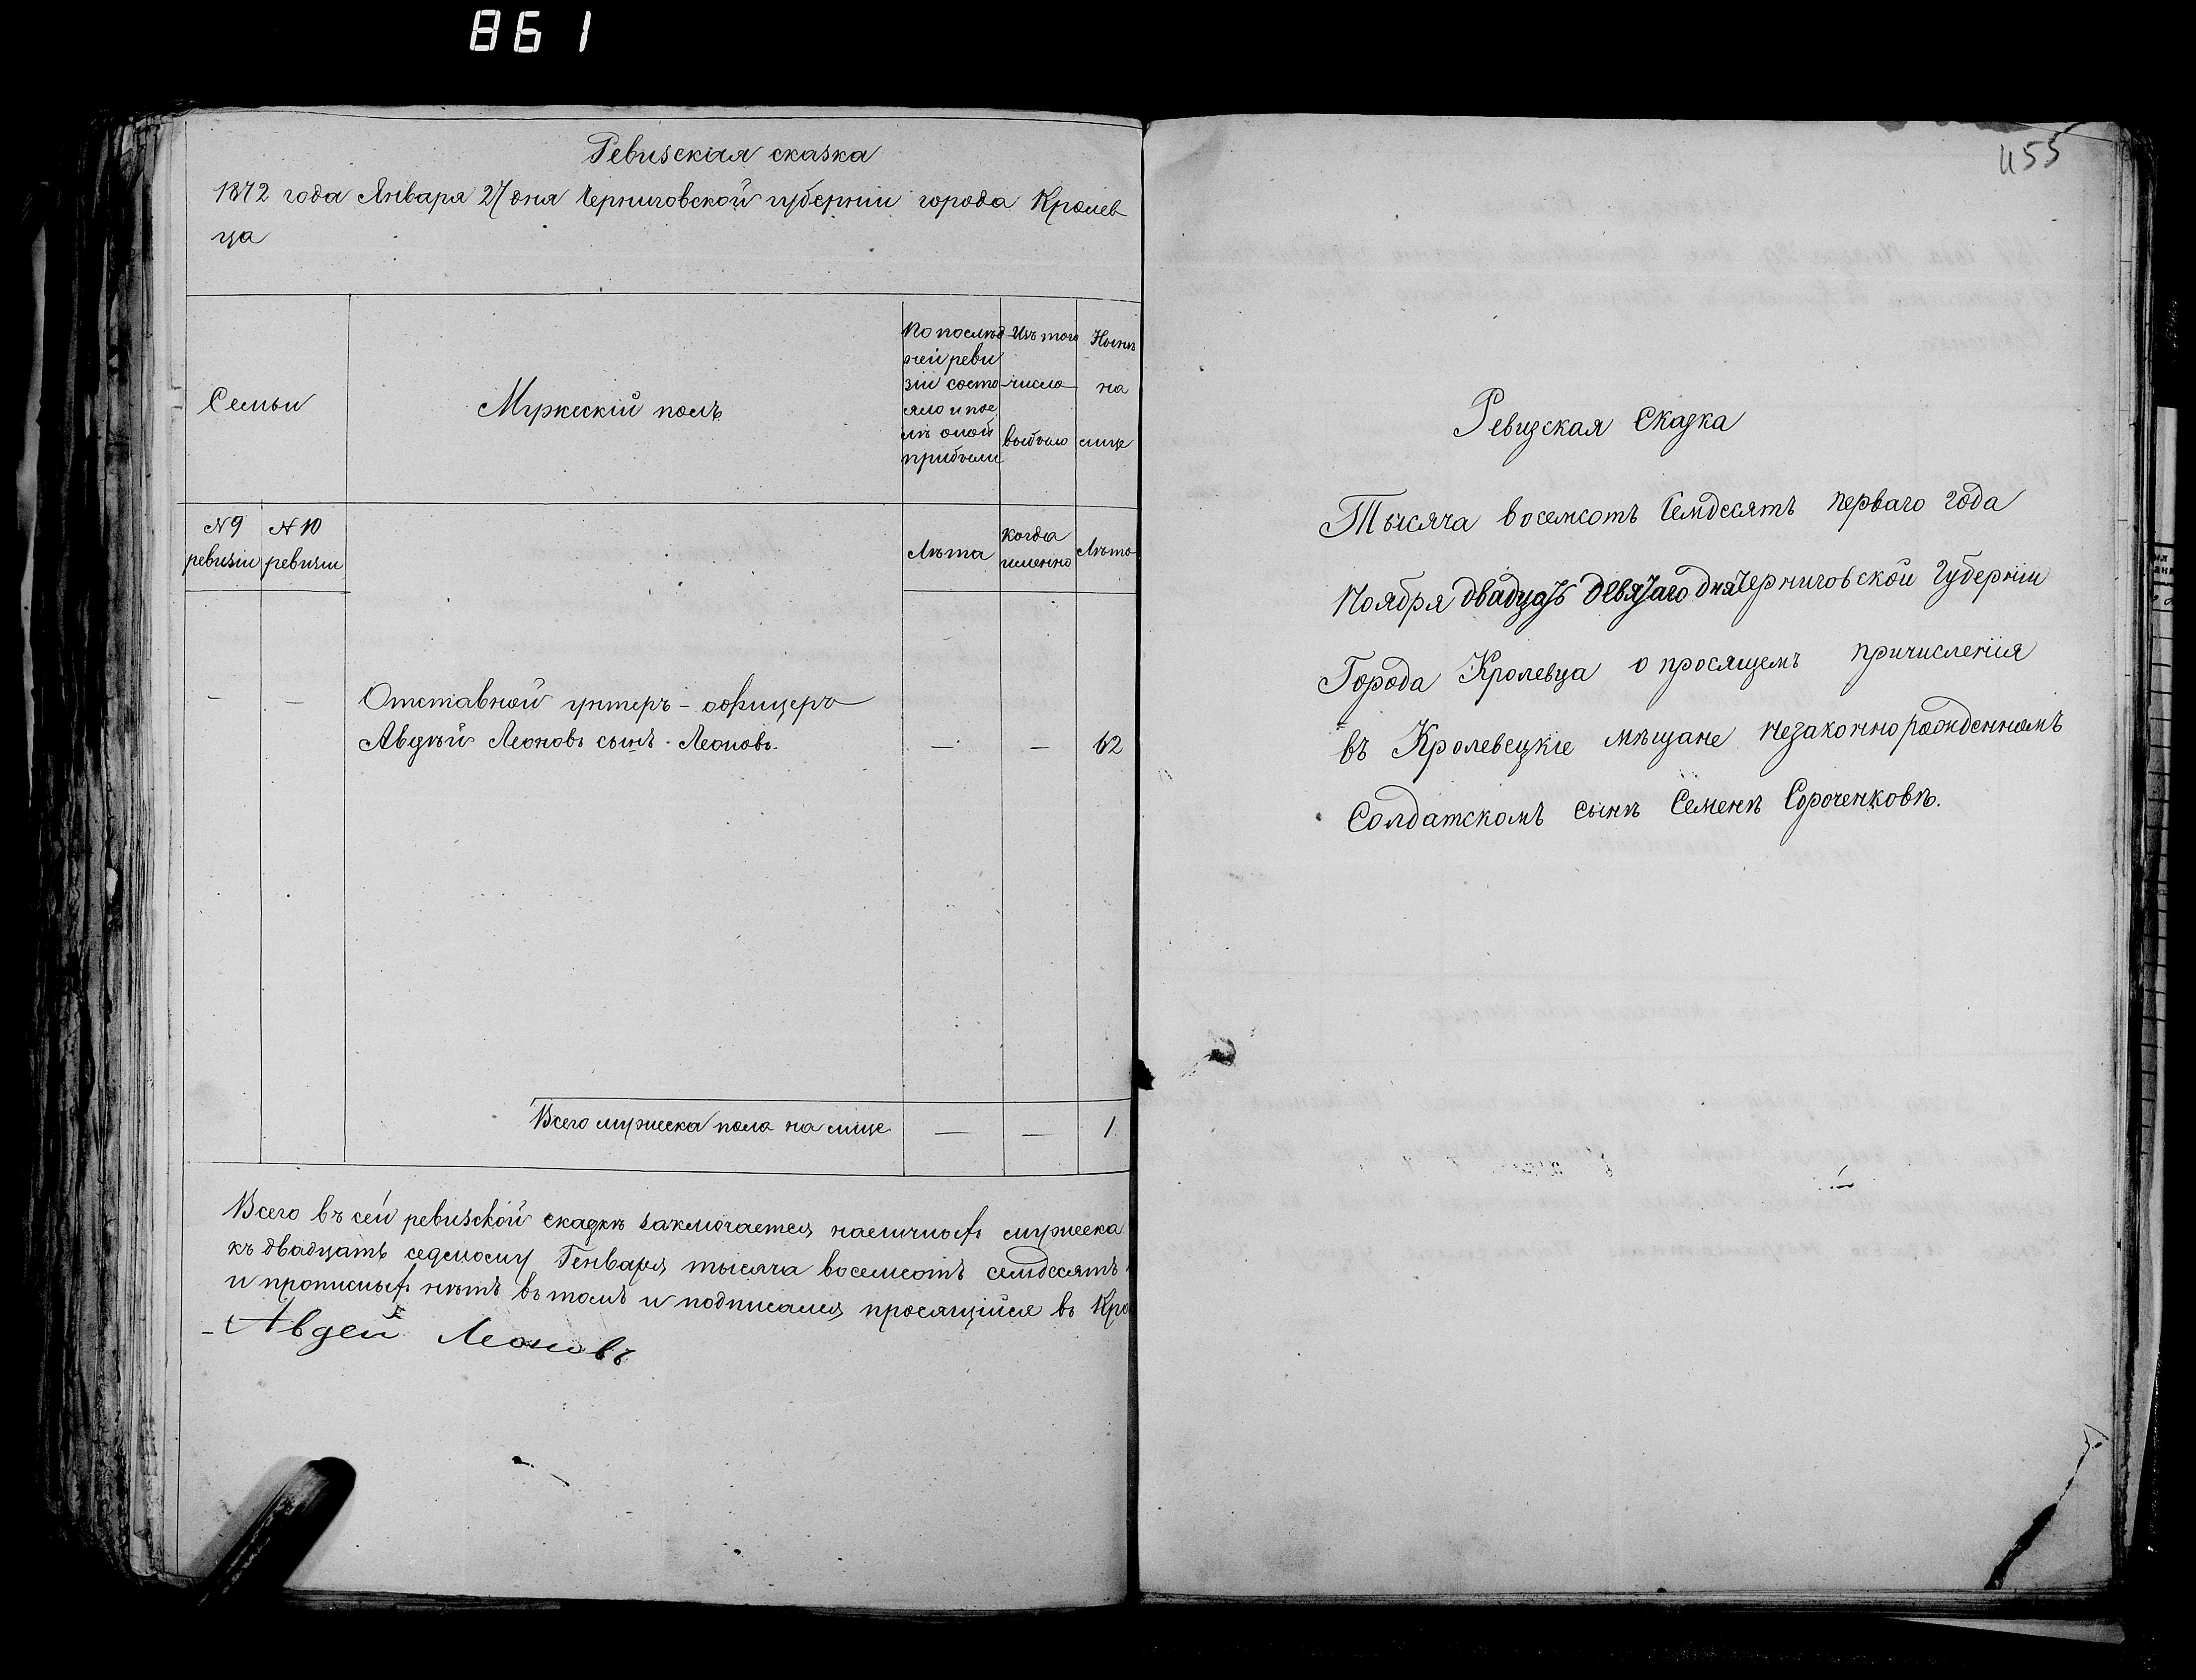 861
Ревизская сказка
1872 года Января 27 дня Черниговской губерніи города Кролев
ца
Семьи
Мужескій полъ
По послѣд
ней реви
зіи состо
яло и пос
лѣ оной
прибыли
Изъ того
число
выбыло
Нынѣ
на
лице
№ 9
ревизіи
№ 10
ревизіи
Лѣта
Когда
именно
Лѣта
— — Отставной унтеръ-офицеръ
Авдѣй Леоновъ сынъ Леоновъ. — — 62
Всего мужеска пола на лице — — 1
Всего въ сей ревизской сказкѣ заключается наличныхъ мужеска
къ двадцать седьмому Генваря тысяча восемсотъ семдесятъ
и прописныхъ нѣтъ въ томъ и подписался просящійся въ Кро
Авдей Леоновъ
455
Ревизская Сказка
Тысяча восемсотъ Семдесятъ перваго года
Ноября двадцать девятаго дня Черниговской Губерніи
Города Кролевца о просящемъ причисленія
въ Кролевецкіе мѣщане незаконно рожденномъ
Солдатскомъ сынѣ Семенѣ Сороченковѣ.